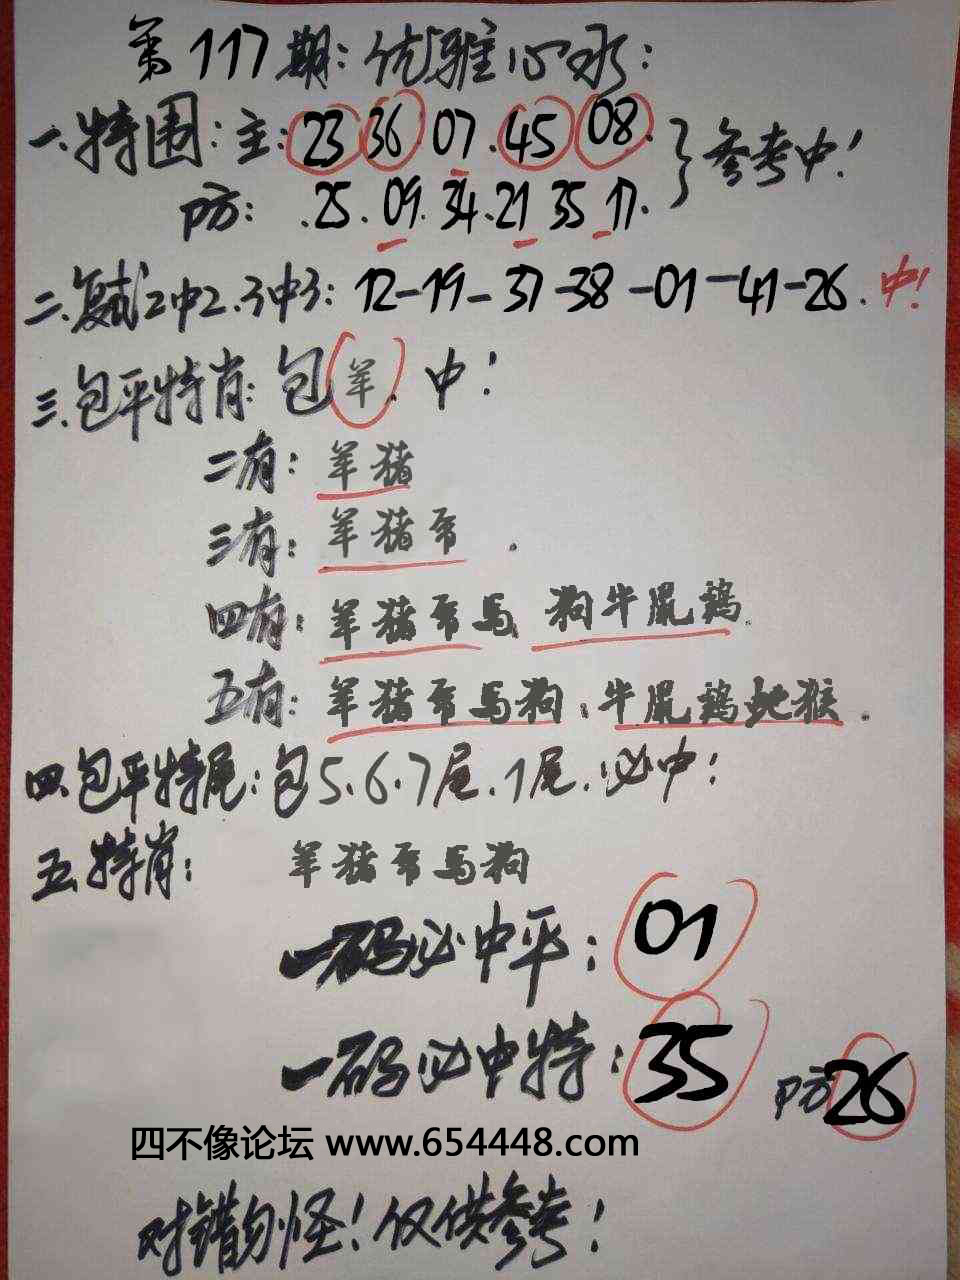 第117期：优雅心水：
一.特围：主：23 36 07.45 08.
防：.25.09.34.21 35 17.
}参考中！
二.复试2中2.3中3：12-19-37-38-01-41-26.中！
三.包平特肖：包羊.中！
二有：羊猪
三有：羊猪兔.
四有：羊猪兔马 狗牛鼠鸡.
五有：羊猪兔马狗：牛鼠鸡蛇猴.
四.包平特尾：包5.6.7尾.1尾.必中！
五.特肖：羊猪兔马狗
一码必中平：01
一码必中特：35 防26
四不像论坛 www.654448.com
对错勿怪！仅供参考！